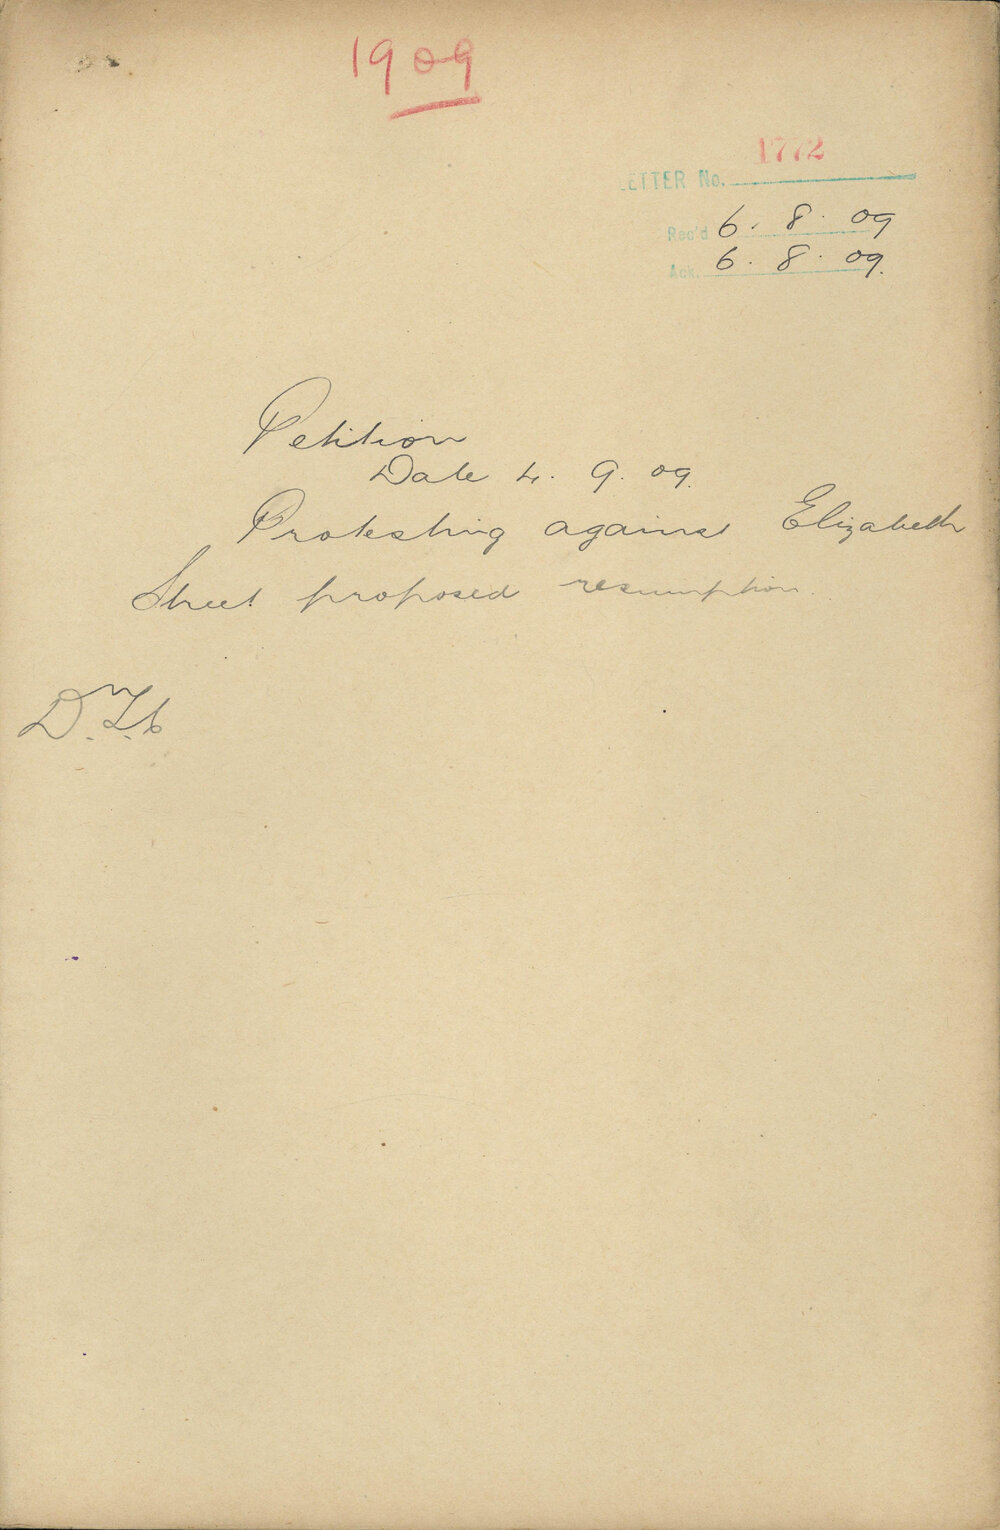 1909
1772
LETTER No.
Rec'd 6. 8. 09
Ack. 6. 8. 09.
Petition
Date 4. 9. 09.
Protesting against Elizabeth
Street proposed resumption.